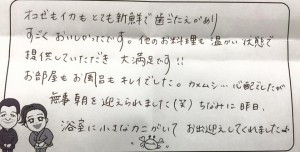 オコゼもイカもとても新鮮で歯ごたえがあり
すごくおいしかったです。他のお料理も温かい状態で
提供していただき大満足です!!
お部屋もお風呂もキレイでした。カメムシ…心配でしたが
無事朝を迎えられました(笑) ちなみに昨日、
浴室に小さなカニがいてお出迎えしてくれました♪